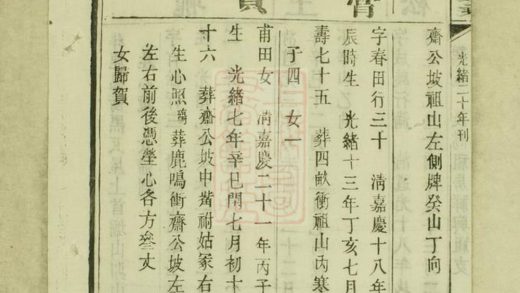 光緒二十年刊
齋公坡祖山左側牌癸山丁向
字春田行三十 清嘉慶十八年
辰時生 光緒十三年丁亥七月
壽七十五 葬四畝衝祖山丙寒
子四 女一
甫田女 清嘉慶二十一年丙子
生 光緒七年辛巳閏七月初十
寸六 葬齋公坡中揩祔姑冢右
生心照碣葬鹿鳴衝齋公坡左
左右前後憑塋心各方叄丈
女歸賀